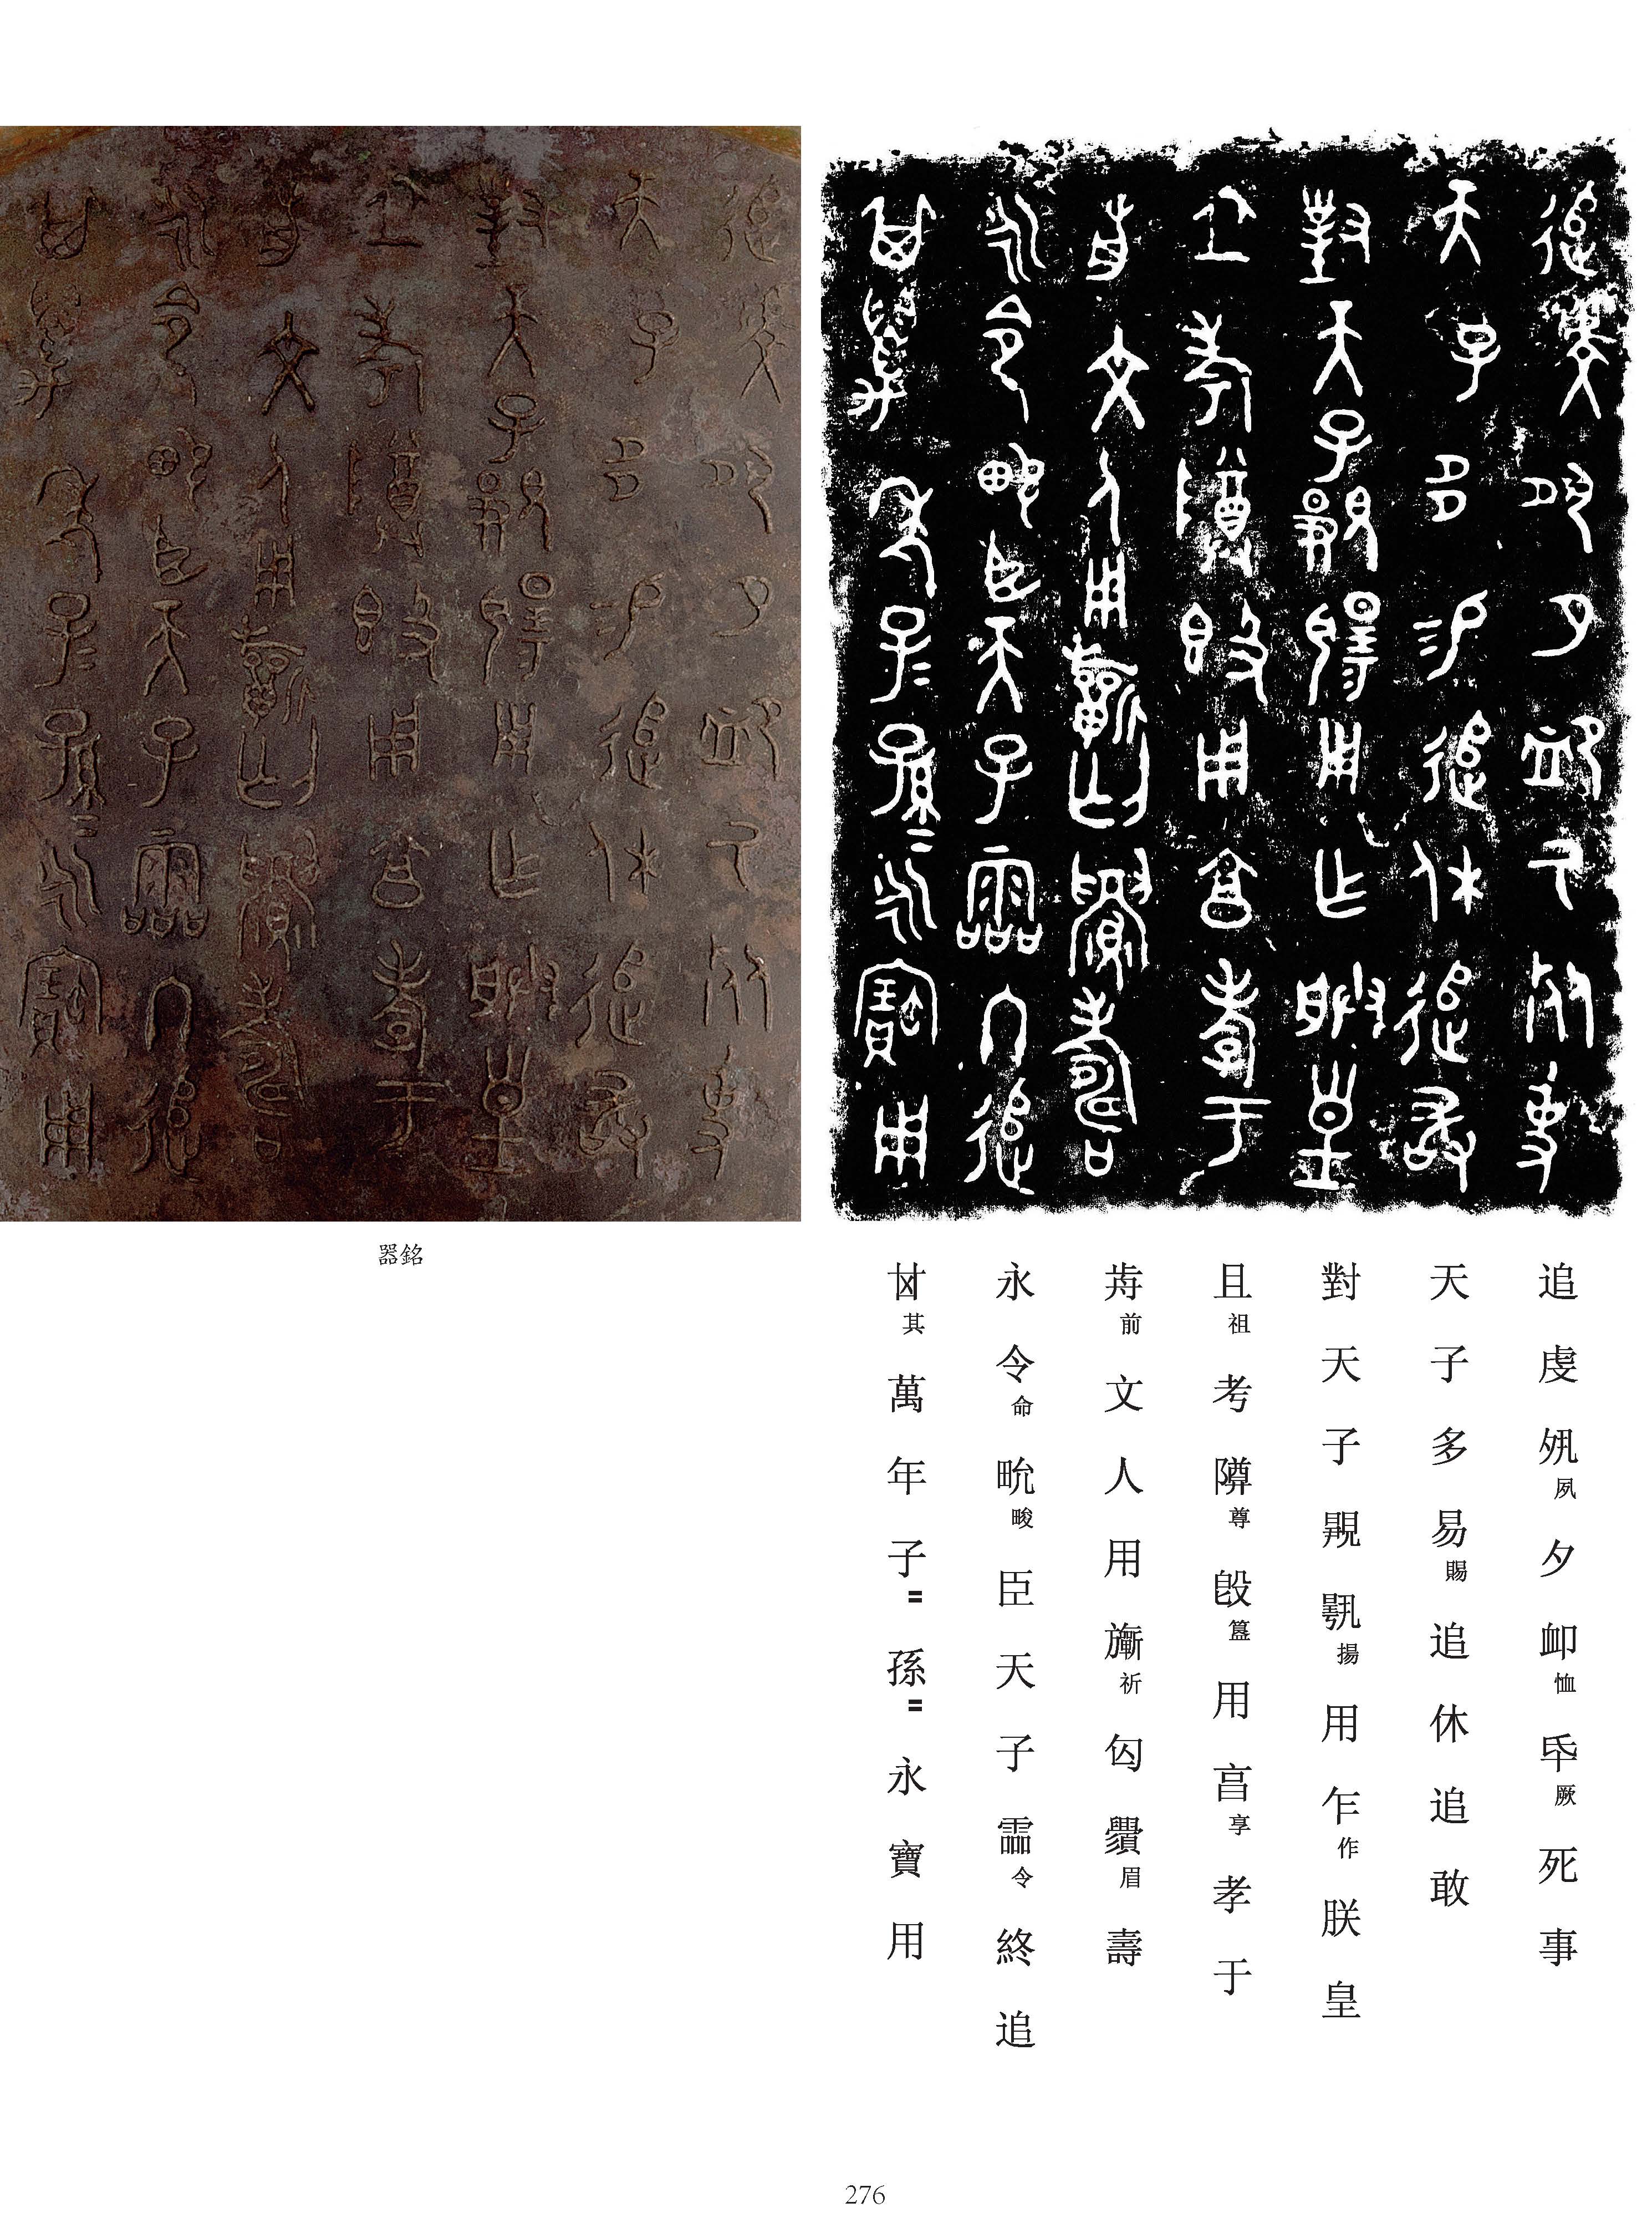 器銘
追虔夙夙夕卹恤氒厥死事
天子多易賜追休追敢
對天子覭揚用乍作朕皇
且祖考尊𣪘簋用亯享孝于
歬前文人用祈匃眉壽
永令命畯臣天子霝令終追
其萬年子〓孫〓永寶用
276